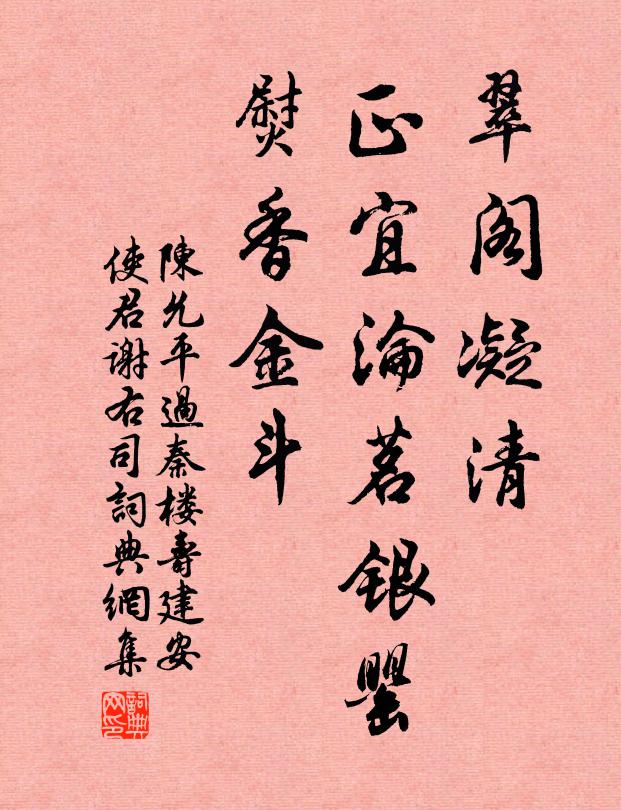 翠阁凝清
正宜淪茗銀罌
熨香金斗
陳允平過秦楼壽建安
使君谢右司詞典網集
詞典网印